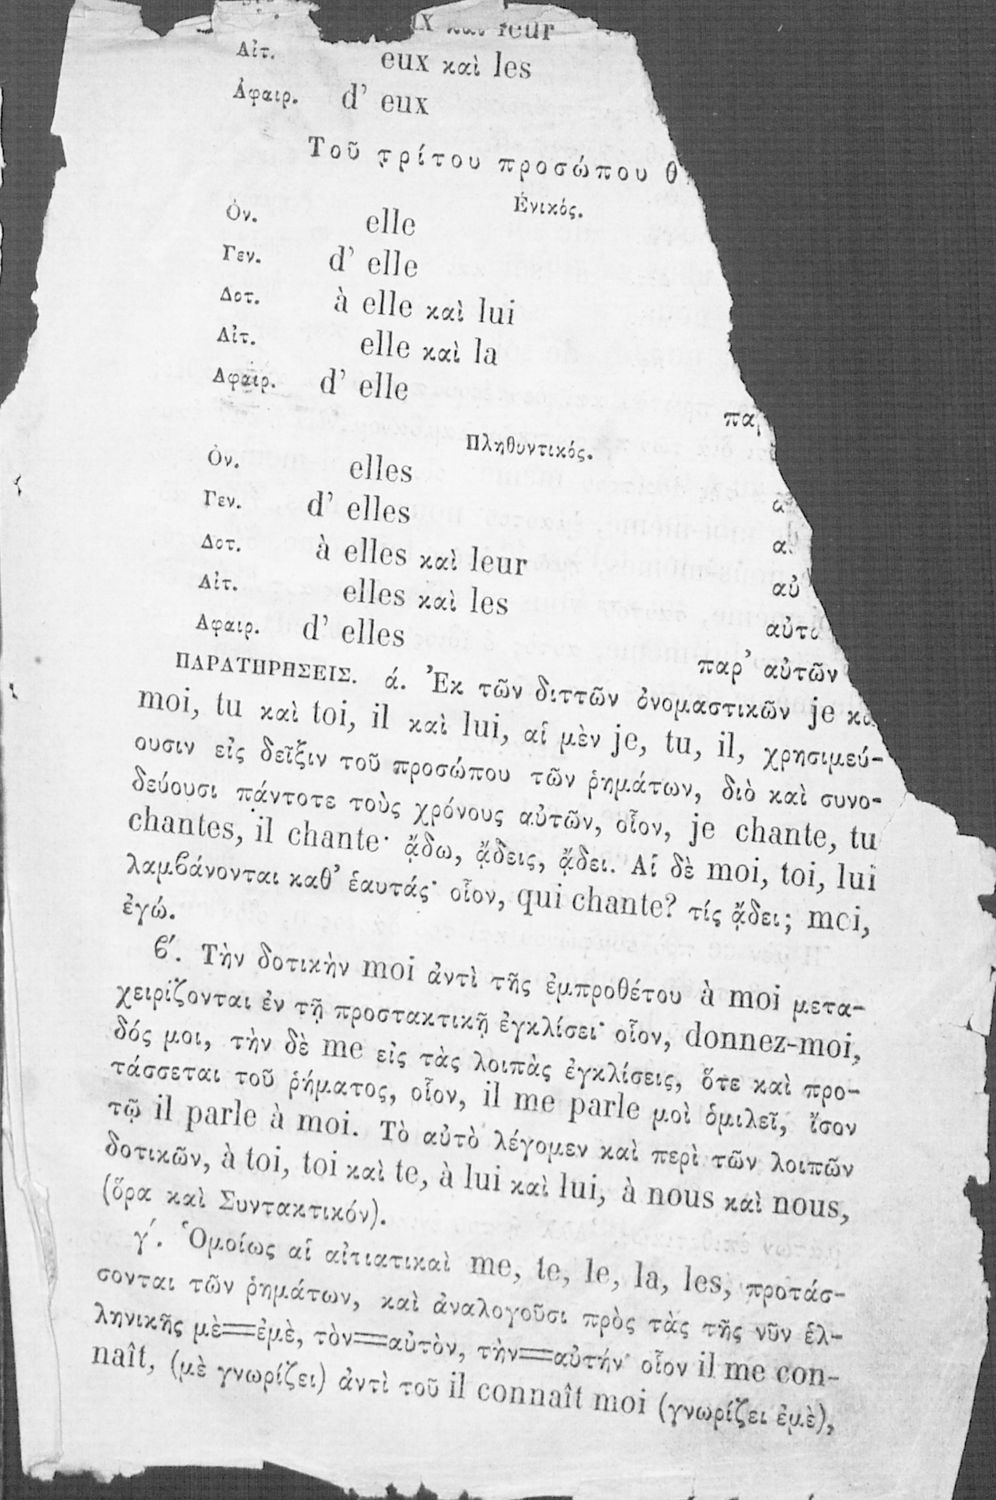 καὶ leur
Αἰτ. eux καὶ les
Ἀφαιρ. d' eux
Τοῦ τρίτου προσώπου
Ἑνικός.
Ὀν. elle
Γεν. d' elle
Δοτ. à elle καὶ lui
Αἰτ. elle καὶ la
Ἀφαιρ. d' elle
Πληθυντικός.
Ὀν. elles
Γεν. d' elles
Δοτ. à elles καὶ leur
Αἰτ. elles καὶ les
Ἀφαιρ. d' elles
παρ' αὐτῶν
ΠΑΡΑΤΗΡΗΣΕΙΣ. ά. Ἐκ τῶν διττῶν ὀνομαστικῶν je
moi, tu καὶ toi, il καὶ lui, αἱ μὲν je, tu, il, χρησιμεύ-
ουσιν εἰς δεῖξιν τοῦ προσώπου τῶν ῥημάτων, διὸ καὶ συνο-
δεύουσι πάντοτε τοὺς χρόνους αὐτῶν, οἷον, je chante, tu
chantes, il chante· ᾄδω, ᾄδεις, ᾄδει. Αἱ δὲ moi, toi, lui
λαμβάνονται καθ' ἑαυτάς· οἷον, qui chante? τίς ᾄδει; moi,
ἐγώ.
ϐ΄. Τὴν δοτικὴν moi ἀντὶ τῆς ἐμπροθέτου à moi μετα-
χειρίζονται ἐν τῇ προστακτικῇ ἐγκλίσει· οἷον, donnez-moi,
δός μοι, τὴν δὲ me εἰς τὰς λοιπὰς ἐγκλίσεις, ὅτε καὶ προ-
τάσσεται τοῦ ῥήματος, οἷον, il me parle μοὶ ὁμιλεῖ, ἴσον
τῷ il parle à moi. Τὸ αὐτὸ λέγομεν καὶ περὶ τῶν λοιπῶν
δοτικῶν, à toi, toi καὶ te, à lui καὶ lui, à nous καὶ nous,
(ὅρα καὶ Συντακτικόν).
γ΄. Ὁμοίως αἱ αἰτιατικαὶ me, te, le, la, les, προτάσ-
σονται τῶν ῥημάτων, καὶ ἀναλογοῦσι πρὸς τὰς τῆς νῦν ἑλ-
ληνικῆς μὲ=ἐμὲ, τὸν=αὐτὸν, τὴν=αὐτήν· οἷον il me con-
naît, (μὲ γνωρίζει) ἀντὶ τοῦ il connaît moi (γνωρίζει ἐμὲ),